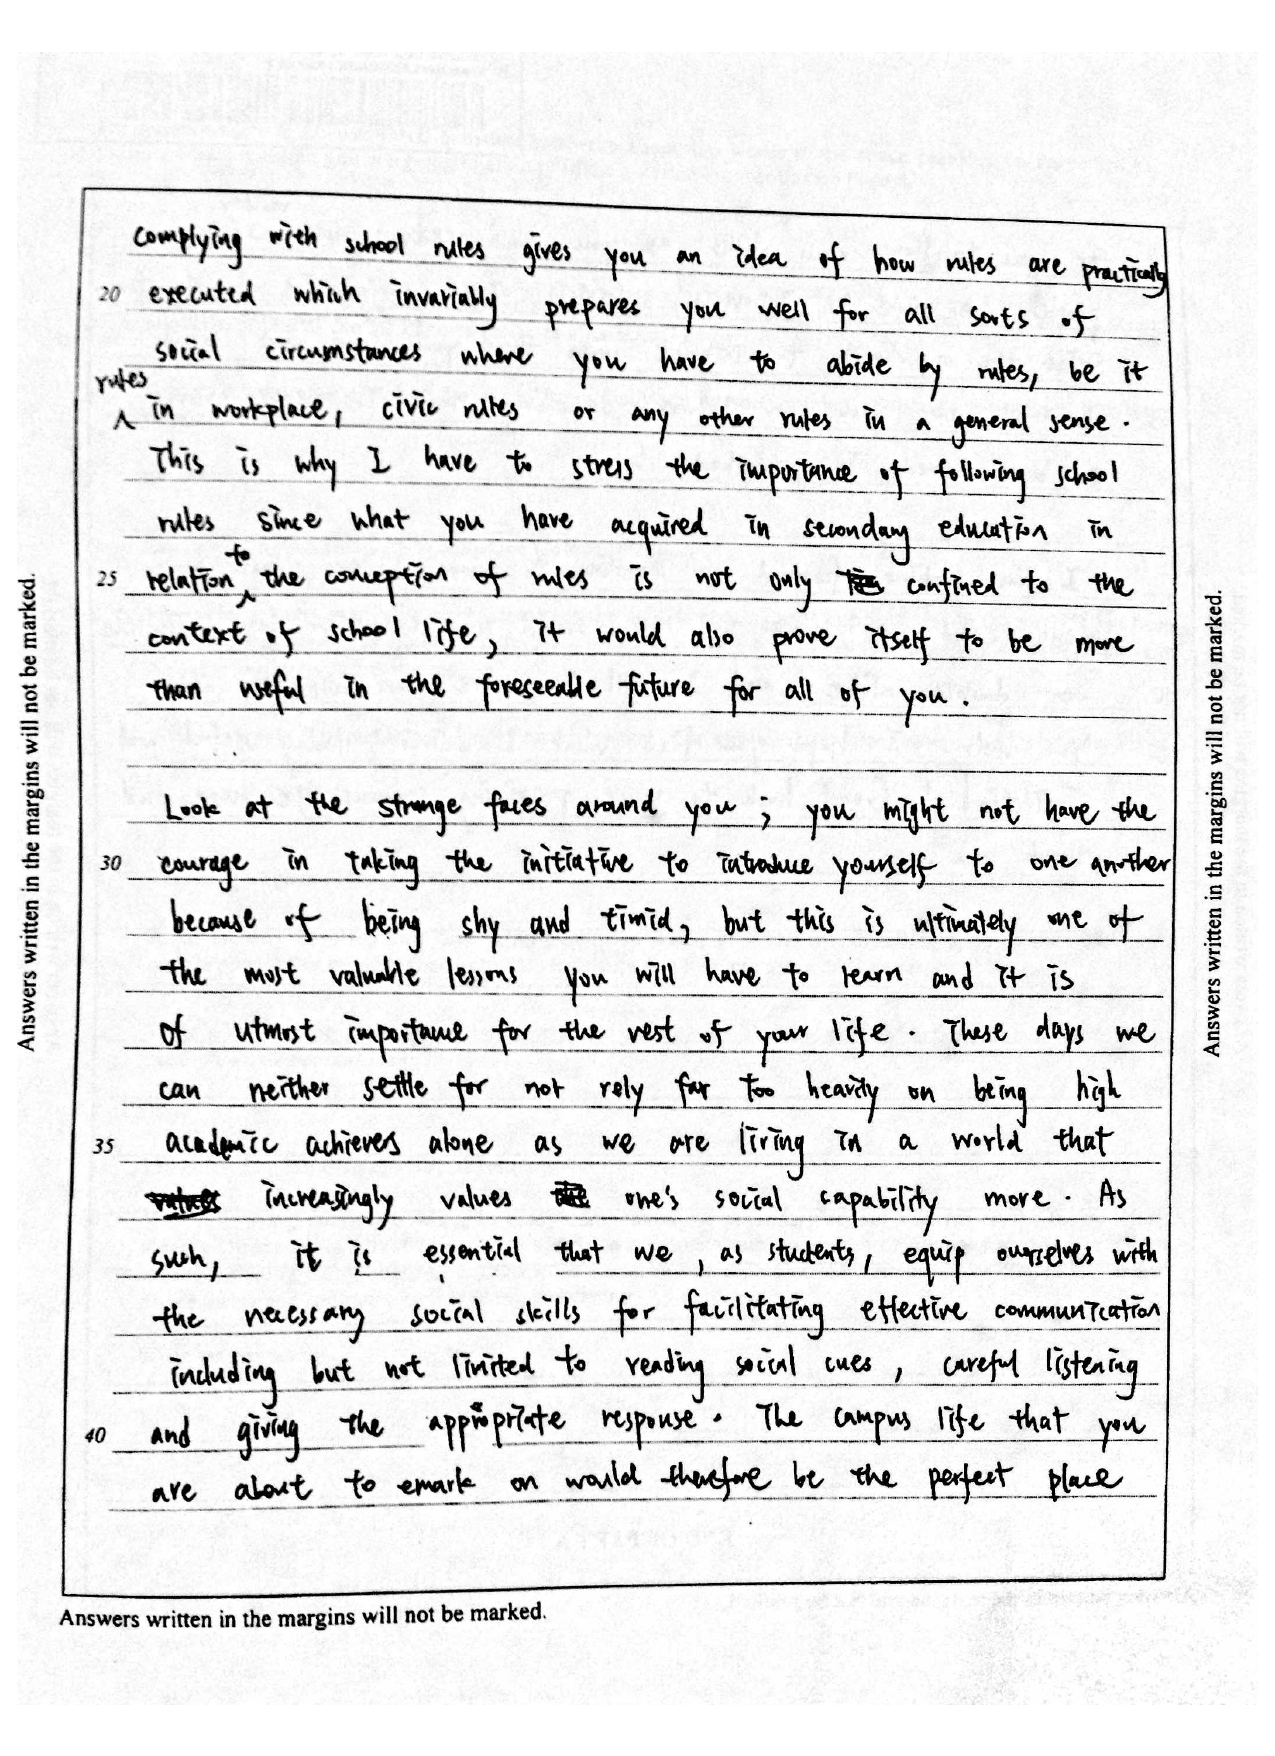 complying with school rules gives you an idea of how rules are practically
20 executed which invariably prepares you well for all sorts of
social circumstances where you have to abide by rules, be it
rules
^ in workplace, civic rules or any other rules in a general sense.
This is why I have to stress the importance of following school
rules since what you have acquired in secondary education in
to
25 relation ^ the conception of rules is not only confined to the
context of school life, it would also prove itself to be more
than useful in the foreseeable future for all of you.
Look at the strange faces around you; you might not have the
30 courage in taking the initiative to introduce yourself to one another
because of being shy and timid, but this is ultimately one of
the most valuable lessons you will have to learn and it is
of utmost importance for the rest of your life. These days we
can neither settle for not rely far too heavily on being high
35 academic achieves alone as we are living in a world that
increasingly values one's social capability more. As
such, it is essential that we, as students, equip ourselves with
the necessary social skills for facilitating effective communication
including but not limited to reading social cues, careful listening
40 and giving the appropriate response. The campus life that you
are about to emark on would therefore be the perfect place
Answers written in the margins will not be marked.
Answers written in the margins will not be marked.
Answers written in the margins will not be marked.